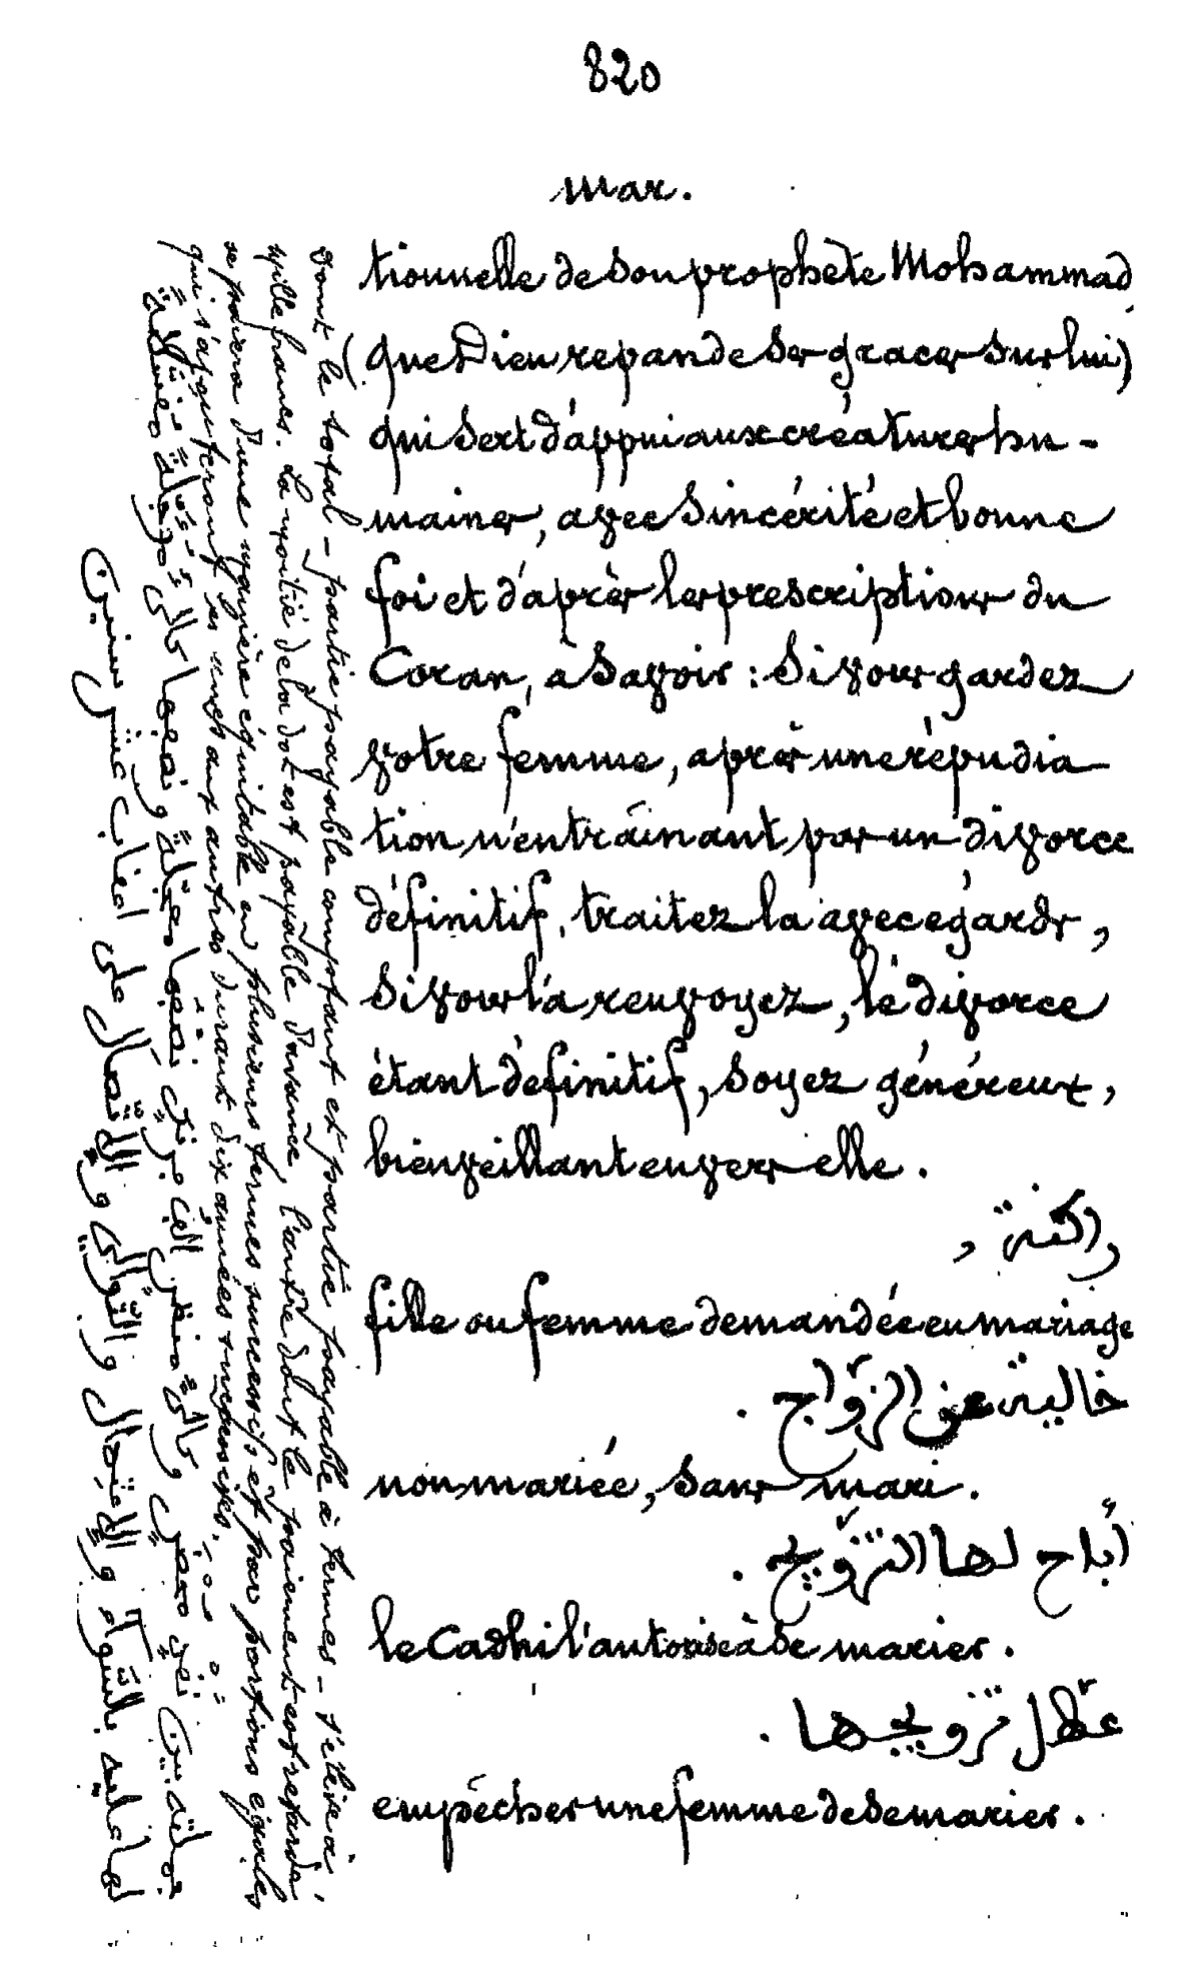 820
mar.
tionnelle de son prophète Mohammad
(que Dieu repande ses graces sur lui)
qui sert d'appui aux créatures hu-
maines, avec sincérité et bonne
foi et d'après les prescriptions du
Coran, à savoir : si vous gardez
votre femme, après une répudia
tion n'entrainant pas un divorce
définitif, traitez la avec égards,
si vous la renvoyez, le divorce
étant définitif, soyez généreux,
bienveillant envers elle.
fille ou femme demandée en mariage
خالية عن الزّواج .
non mariée, sans mari.
اُبَاح لها التزّويج .
le Cadhi l'autorise à se marier.
عطّل تزويجها .
empêcher une femme de se marier.
dont le total – partie payable comptant et partie payable à termes – s'élève à
mille francs. La moitié de la dot est payable d'avance, l'autre dont le paiement est retardé
se paiera d'une manière équitable en plusieurs termes successifs et par portions égales
qui s'acquitteront les unes aux autres durant dix années
جملته بين نقدٍ محضر وكالئٍ منظر الف فرنك نصفها معجّلة ونصفها
لها عليه بالسّواء والاعتدال والتّوالي والاتّصال على اعقاب عشر سنين